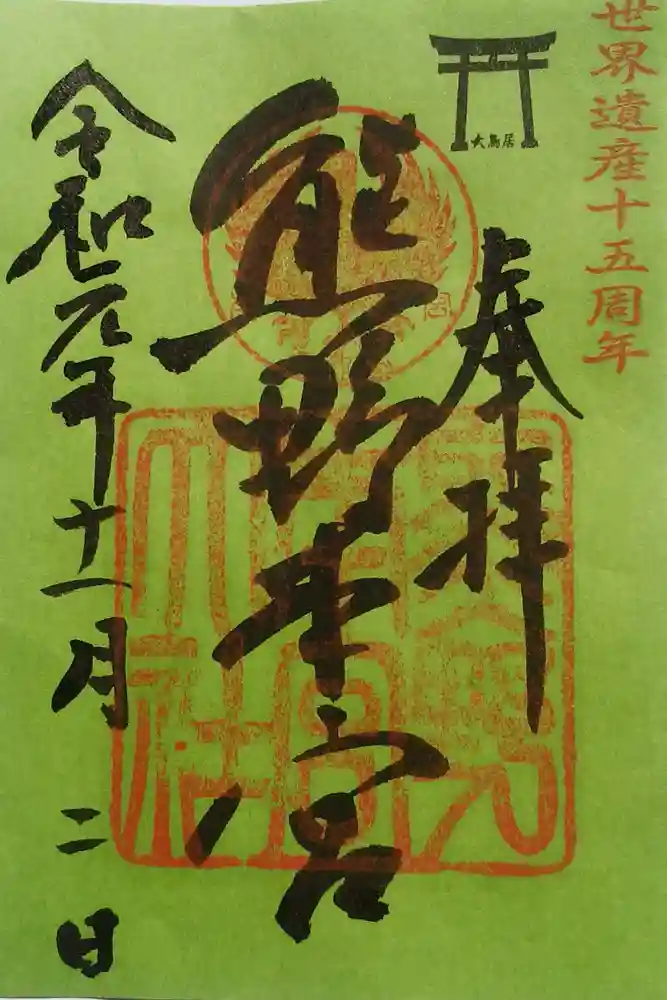 世界遺産十五周年
大鳥居
奉拝
熊野本宮
令和元年十一月二日